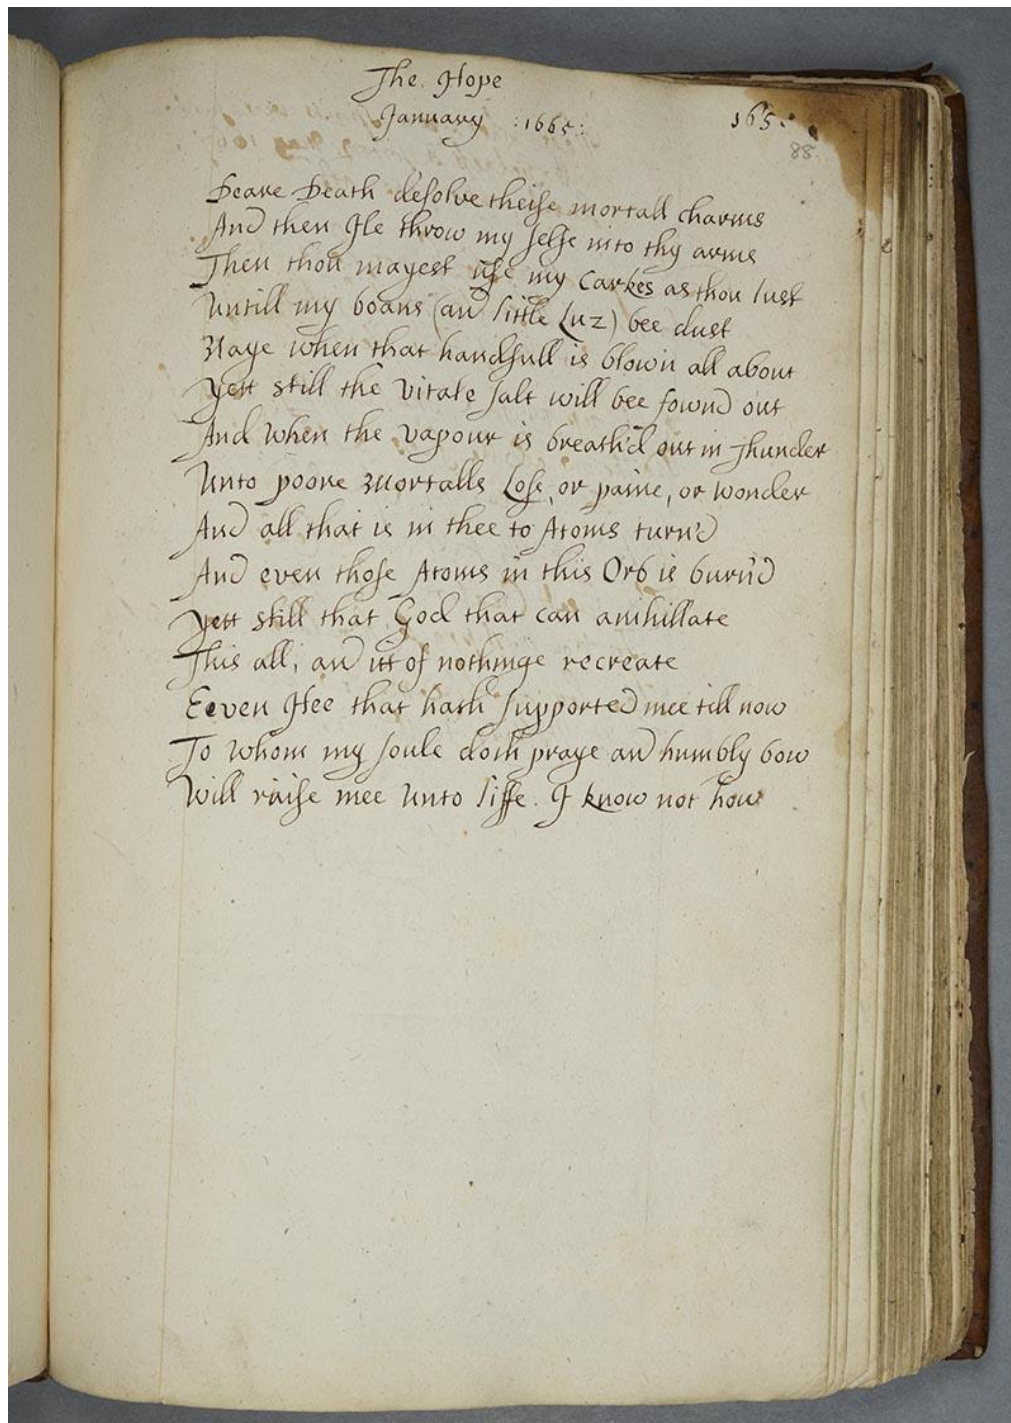 The. Hope
January :1665:
165:
88
Deare Death desolve theise mortall charms
And then Ile throw my selfe into thy arms
Then thou mayest use my Carkes as thou lust
Untill my boans (and little Luz) bee dust
Naye when that handfull is blown all about
Yett still the vitale salt will bee fownd out
And when the vapour is breath'd out in Thunder
Unto poore Mortalls Lose, or paine, or wonder
And all that is in thee to Atoms turn'd
And even those Atoms in this Orb is burn'd
Yett still that God that can anihillate
This all, and itt of nothinge recreate
Eeven Hee that hath supported mee till now
To whom my soule doth praye and humbly bow
Will raise mee unto life. I know not how